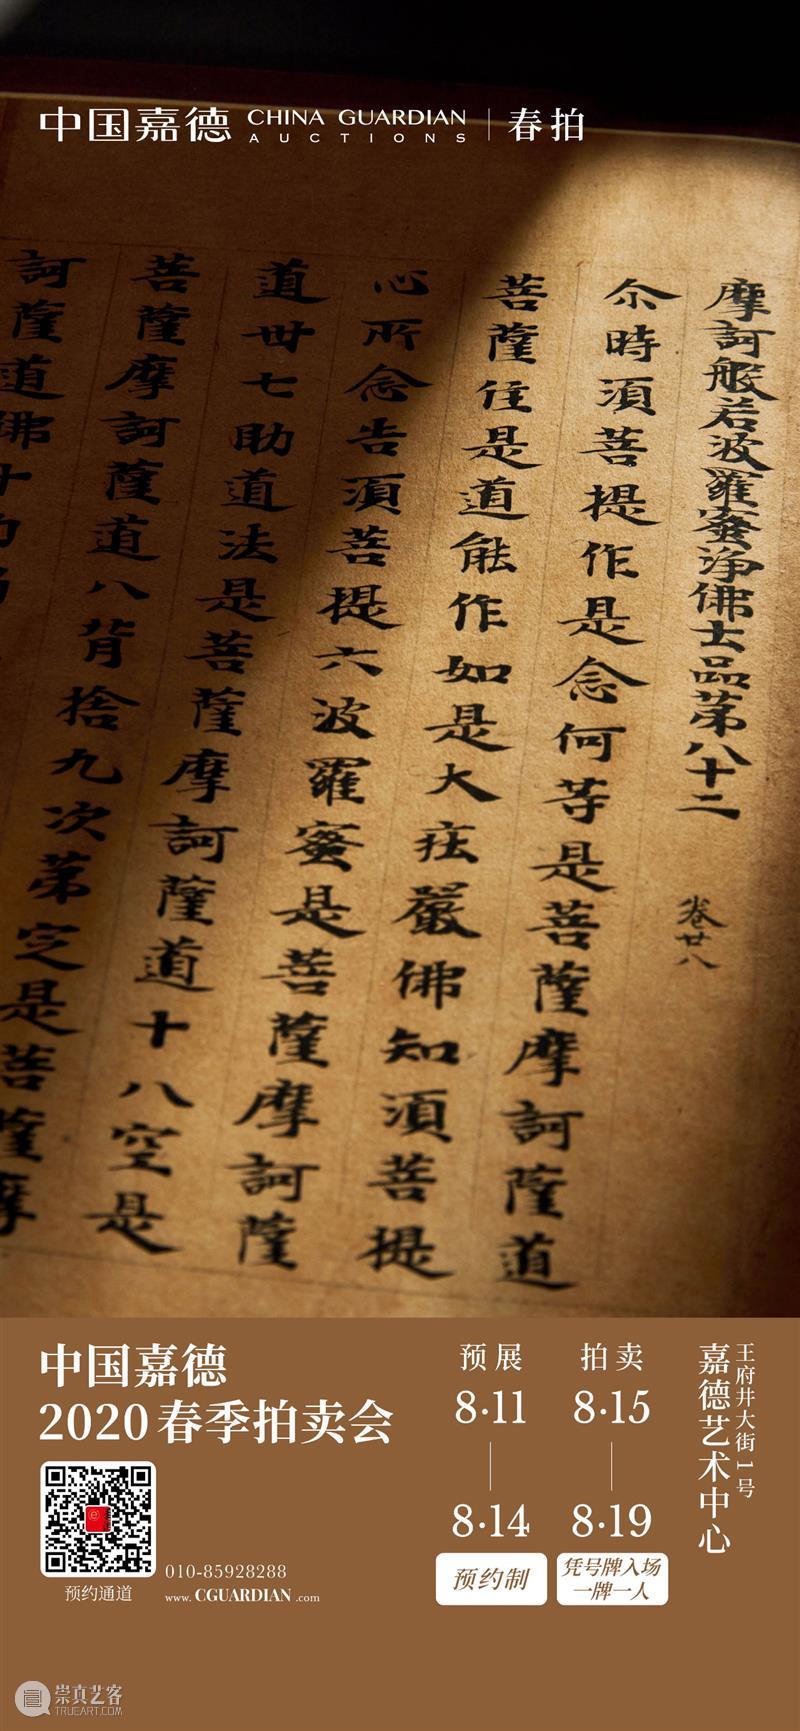 中国嘉德 CHINA GUARDIAN AUCTIONS 春拍
摩訶般若波羅蜜淨佛土品苐八十二 卷廿八
尒時須菩提作是念何等是菩薩摩訶薩道
菩薩住是道能作如是大㽵嚴佛知須菩提
心所念告須菩提六波羅蜜是菩薩摩訶薩
道卅七助道法是菩薩摩訶薩道十八空是
菩薩摩訶薩道八背捨九次苐定是菩薩摩
訶薩道佛十
中国嘉德
2020春季拍卖会
预约通道
010-85928288
www. CGUARDIAN .com
预展
8·11
8·14
预约制
拍卖
8·15
8·19
凭号牌入场
一牌一人
王府井大街1号
嘉德艺术中心
崇真艺客
TRUEART.COM